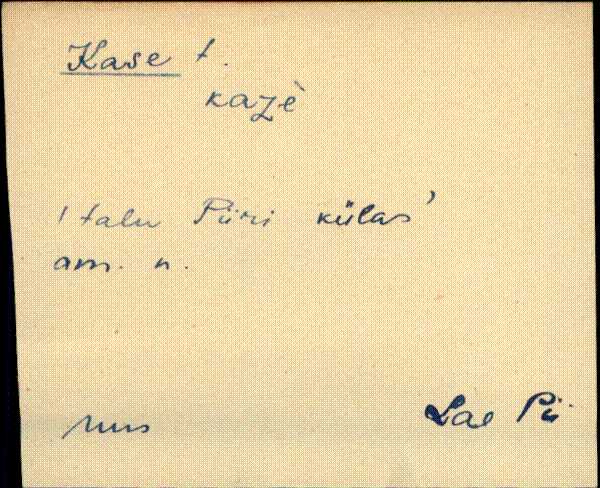 Kase t.
kaʒè
1 talu Piiri külas
am. n.
Mus
Lae Pii